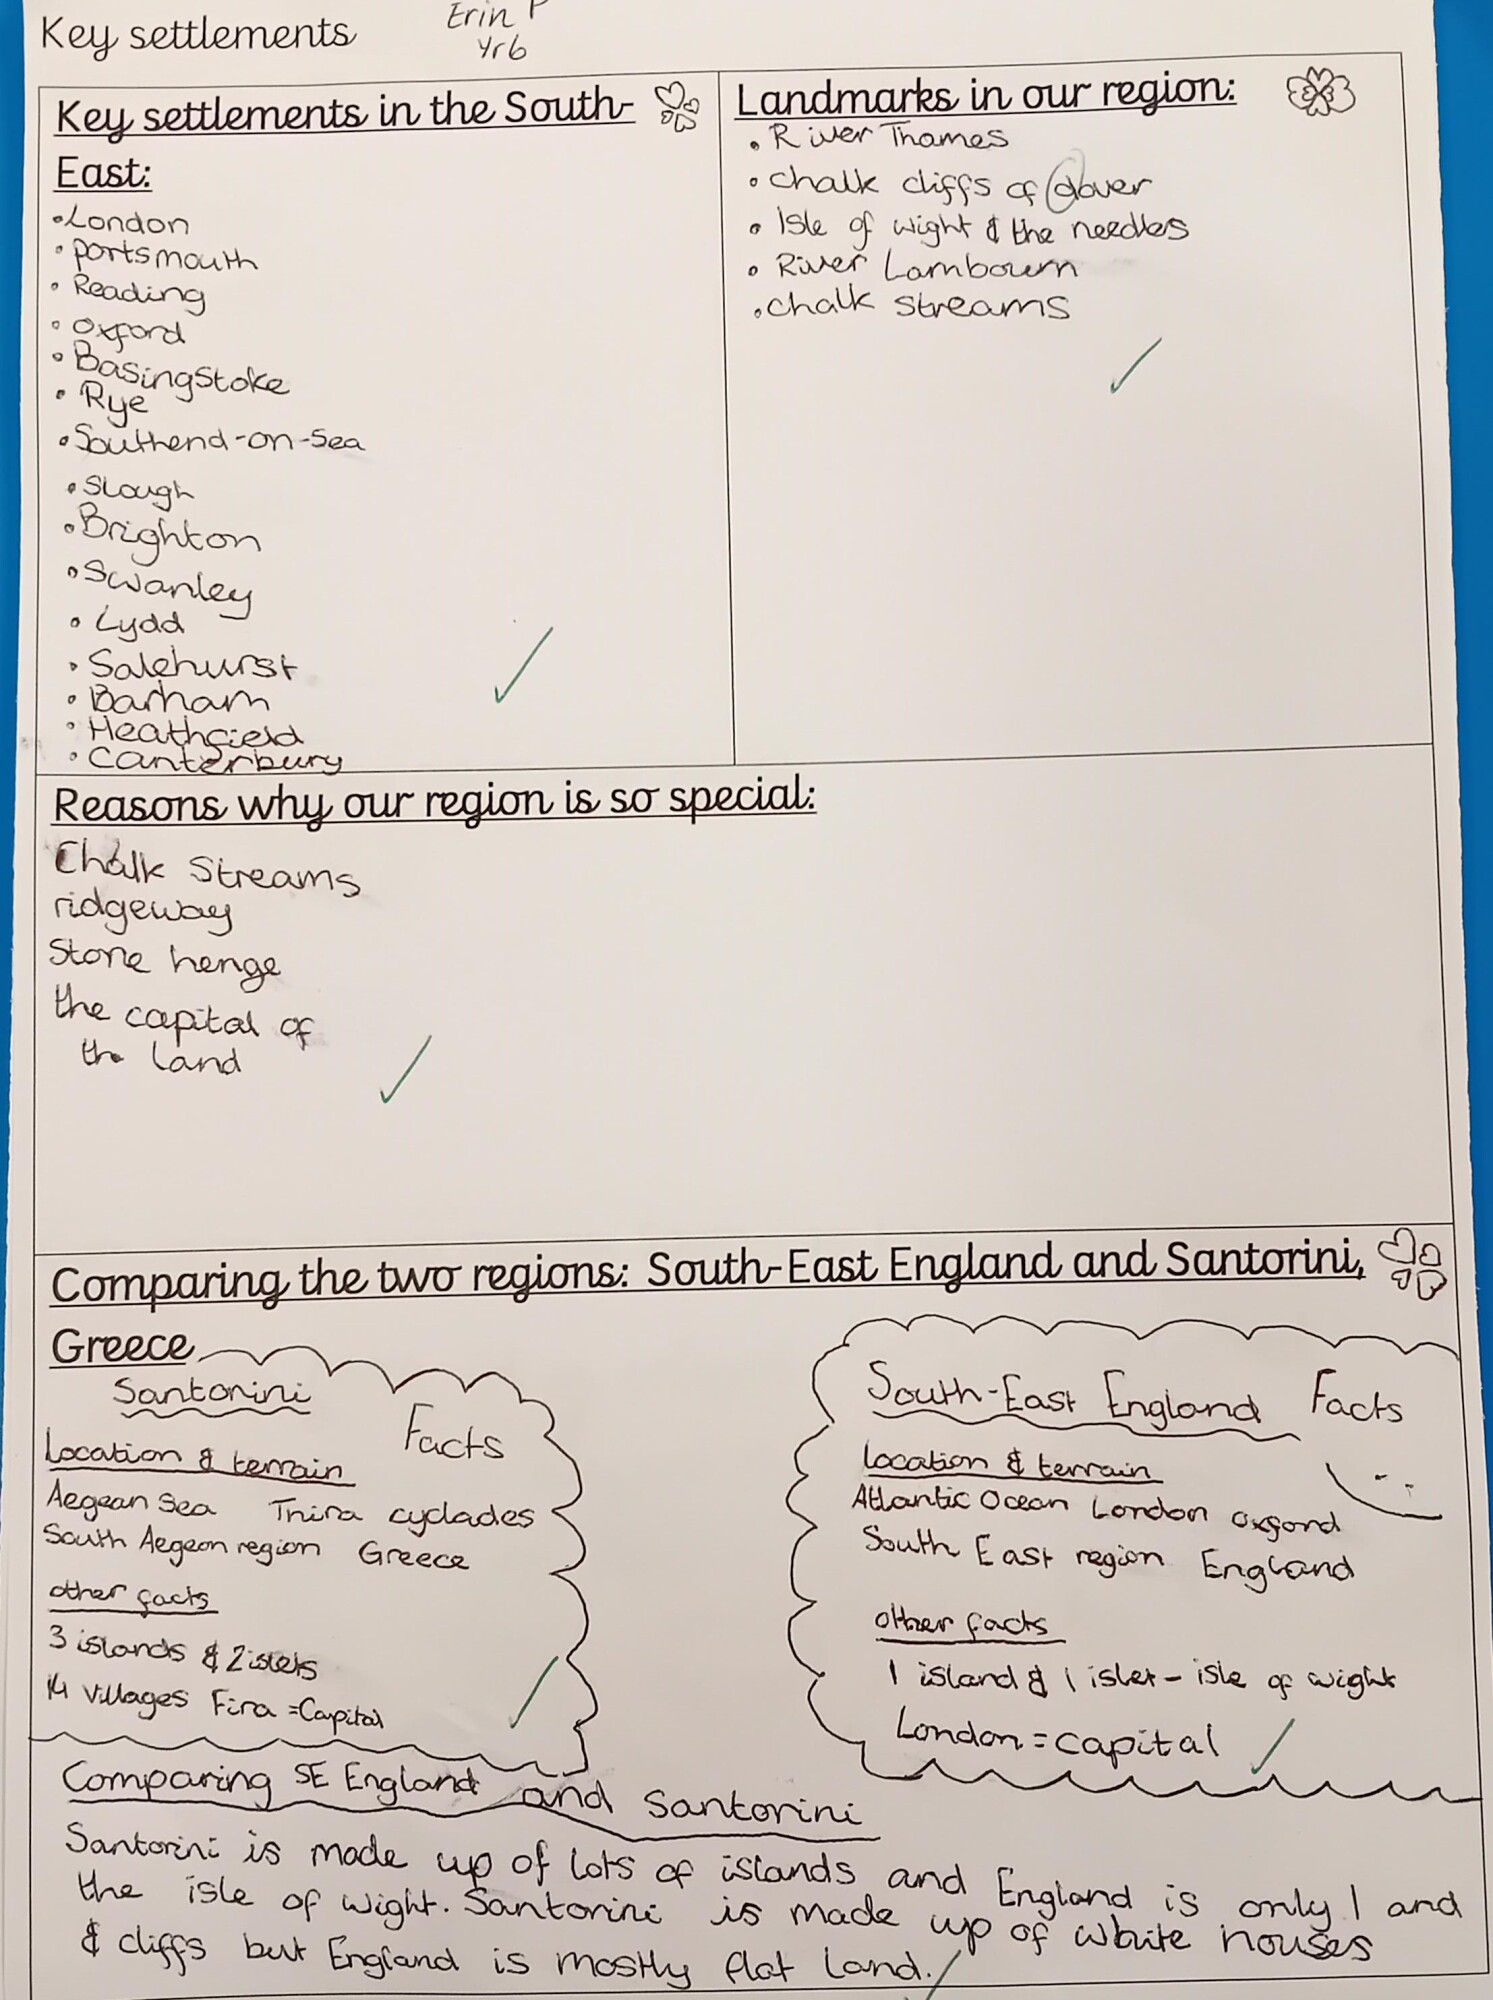 Key settlements
Erin P
Yr6
Key settlements in the South-
East:
•London
•portsmouth
•Reading
•oxford
•BasingStoke
•Rye
•Southend-on-Sea
•Slough
•Brighton
•Swanley
•Lydd
•Salehurst
•Barham
•Heathfield
•Canterbury
Landmarks in our region:
•River Thames
•chalk cliffs of dover
•Isle of wight & the needles
•River Lambourn
•chalk streams
Reasons why our region is so special:
Chalk Streams
ridgeway
Stone henge
the capital of
the land
Comparing the two regions: South-East England and Santorini,
Greece
Santorini
Facts
Location & terrain
Aegean Sea Thira cyclades
South Aegean region Greece
other facts
3 islands & 2 islets
14 villages Fira =Capital
South-East England Facts
Location & terrain
Atlantic Ocean London oxford
South East region England
other facts
1 island & 1 islet - isle of wight
London = capital
Comparing SE England and Santorini
Santorini is made up of lots of islands and England is only 1 and
the isle of wight. Santorini is made up of white houses
& cliffs but England is mostly flat land.